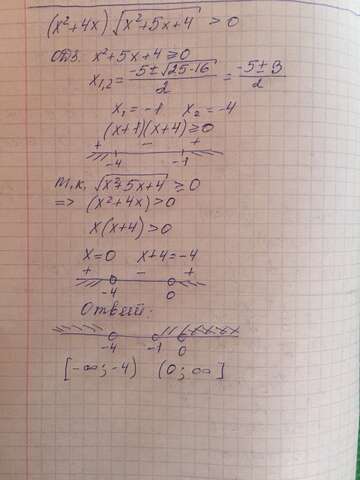 (x²+4x) √(x²+5x+4) > 0
ОТЗ. x²+5x+4≥0
x₁,₂ = (-5±√(25-16))/2 = (-5±3)/2
x₁=-1 x₂=-4
(x+1)(x+4)≥0
+ - +
-4 -1
т.к. √(x²+5x+4) ≥0
=> (x²+4x)>0
x(x+4)>0
x=0 x+4=-4
+ - +
-4 0
Ответ:
-4 -1 0
[-∞;-4) (0;∞]